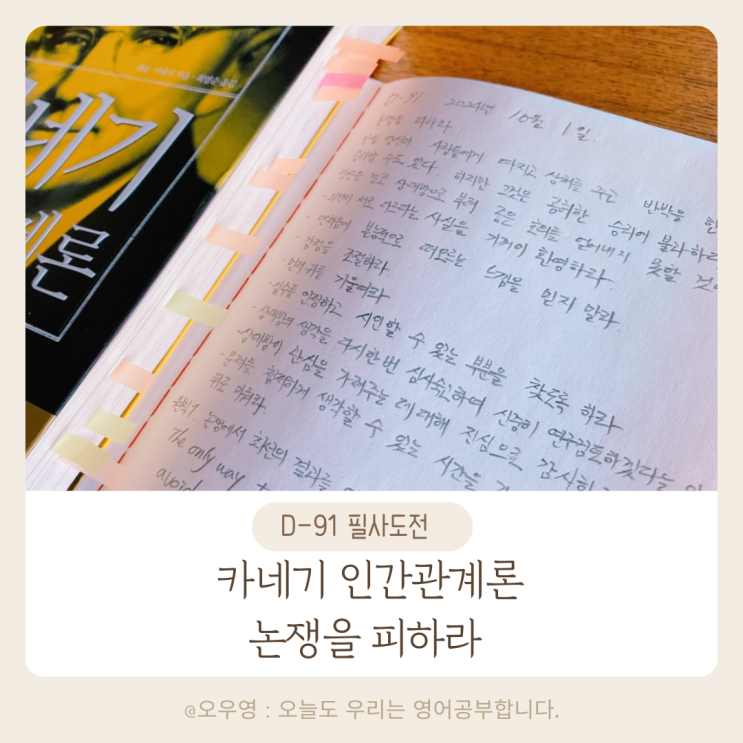 네기
론
D-91 2024년 10월 1일.
논쟁을 피하라
만일 당신이 사람들에게 따지고 상처를 주고 반박을 한
승리할 수도 있다. 하지만 그것은 공허한 승리에 불과하
당신은 결코 상대방으로부터 좋은 호의를 얻어내지 못할 것
· 의견이 서로 다르다는 사실을 기꺼이 환영하라.
· 본능적으로 떠오르는 느낌을 믿지 말라.
· 감정을 조절하라
· 먼저 귀를 기울여라
· 실수를 인정하고 시인할 수 있는 부분을 찾도록 하라
· 상대방의 생각을 다시한번 심사숙고하며 신중히 연구검토하겠다는
· 상대방이 관심을 가져주는 데 대해 진심으로 감사하
· 문제를 철저하게 생각할 수 있는 시간을
뒤로 미뤄라.
원칙1 논쟁에서 최선의 결과를
The only way
avoid
D-91 필사도전
카네기 인간관계론
논쟁을 피하라
@오우영 : 오늘도 우리는 영어공부합니다.